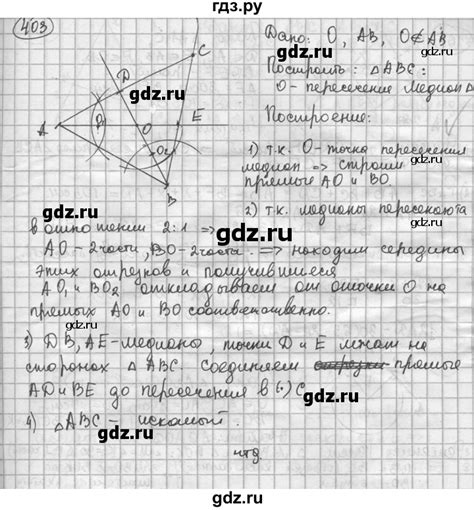 гдз.ру
403
Дано: O, AB, O∉AB
Построить: △ABC:
O - пересечение медиан △
Построение:
1) т.к. O - точка пересечения
медиан => строим
прямые AO и BO.
2) т.к. медианы пересекаются
в отношении 2:1 =>
AO - 2 части, BO - 2 части. => находим середины
этих отрезков и получившиеся
AO₁ и BO₂ откладываем от точки O на
прямых AO и BO соответственно.
3) DB, AE - медианы, точки D и E лежат на
сторонах △ABC соединяем прямые
AD и BE до пересечения в (·) C
4) △ABC - искомый.
чтд.
A
B
C
D
E
O
O₁
O₂
gdz.ru
gdz.ru
gdz.ru
gdz.ru
gdz.ru
gdz.ru
gdz.ru
gdz.ru
gdz.ru
gdz.ru
гдз.ру